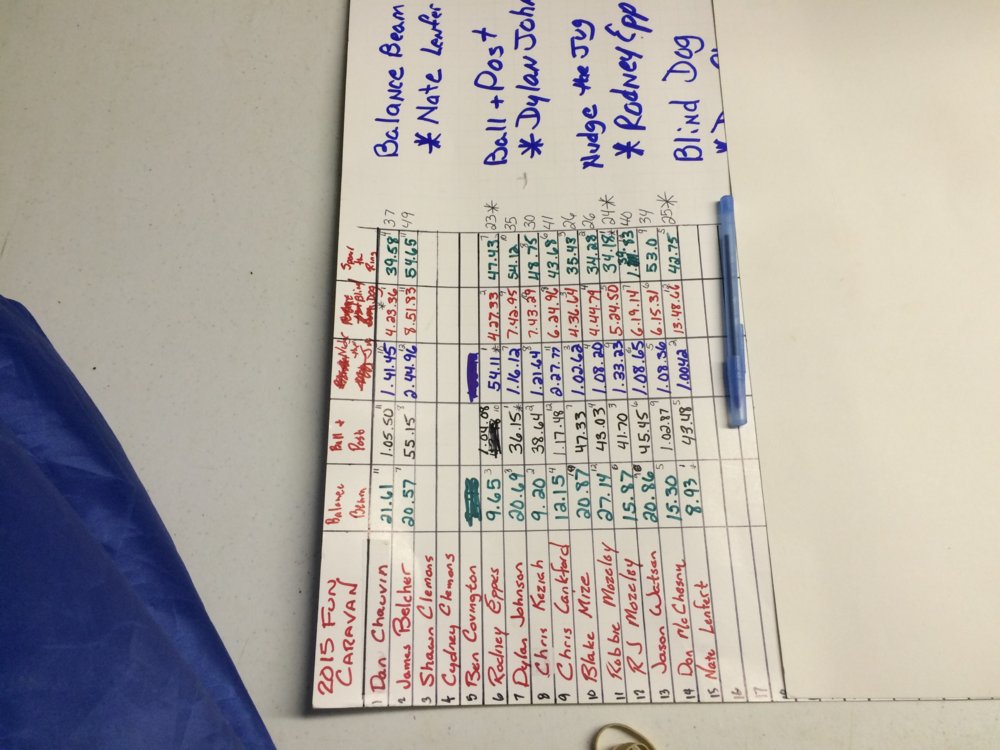 2015 FUN CARAVAN Balance Beam Ball + Post Blind Dog Spear the Ring
1 Dan Chauvin 21.61 1.05.50 1.41.45 4.23.36 39.58 37
2 James Belcher 20.57 55.15 2.44.96 8.51.83 54.65 49
3 Shawn Clemons
4 Cydney Clemons
5 Ben Covington
6 Rodney Eppes 9.65 1.04.08 54.11 4.27.33 47.43 23*
7 Dylan Johnson 20.69 36.15 1.16.12 7.42.95 54.12 35
8 Chris Keziah 9.20 38.64 1.21.64 7.43.29 48.75 30
9 Chris Lankford 12.15 1.17.48 2.27.77 6.24.96 43.69 41
10 Blake Mize 20.87 47.33 1.02.62 4.36.64 35.43 26
11 Robbie Mozeley 27.14 43.03 1.08.20 4.44.79 34.28 26
12 RJ Mozeley 15.87 41.70 1.33.23 5.24.50 34.18 24*
13 Jason Watson 20.86 45.45 1.08.65 6.19.14 40
14 Dan McChesny 15.30 1.02.87 1.08.36 6.15.31 53.0 34
15 Nate Lenfert 8.93 43.48 1.0042 13.48.66 42.75 25*
16
17
Balance Beam
* Nate Lenfer
Ball + Post
* Dylan John
Nudge the Jug
* Rodney Epp
Blind Dog